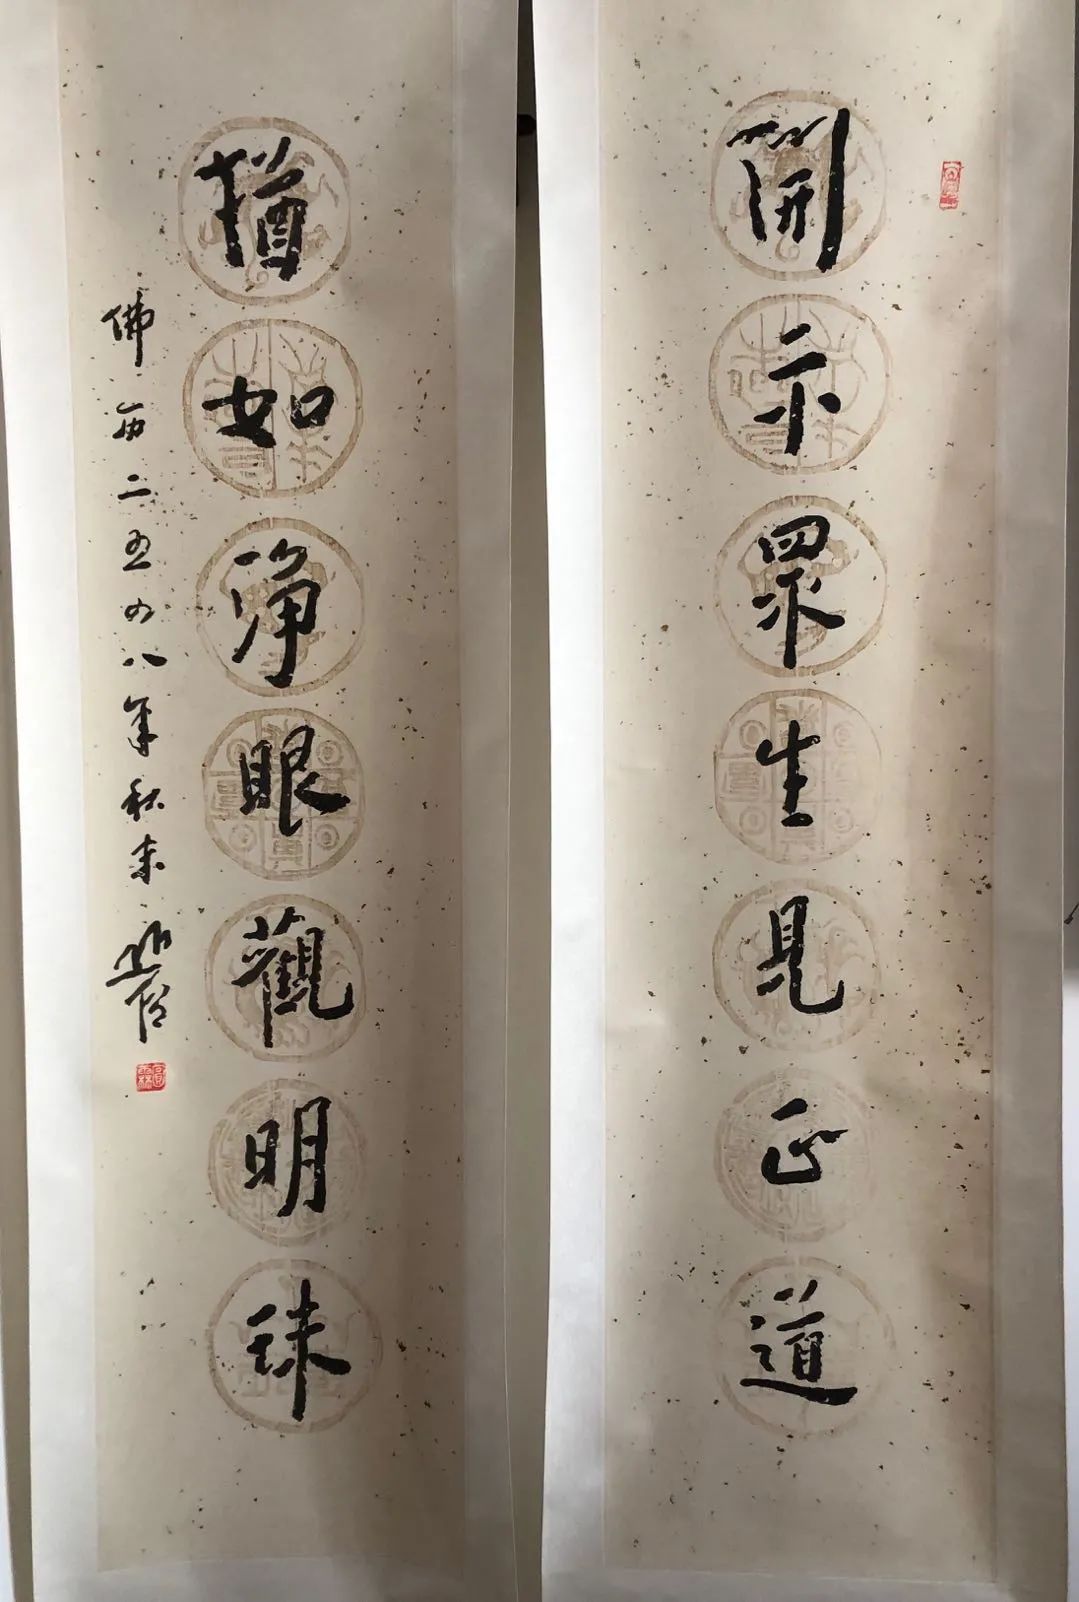 開示眾生見正道
猶如淨眼觀明珠
佛曆二五四八年秋末
圓霖